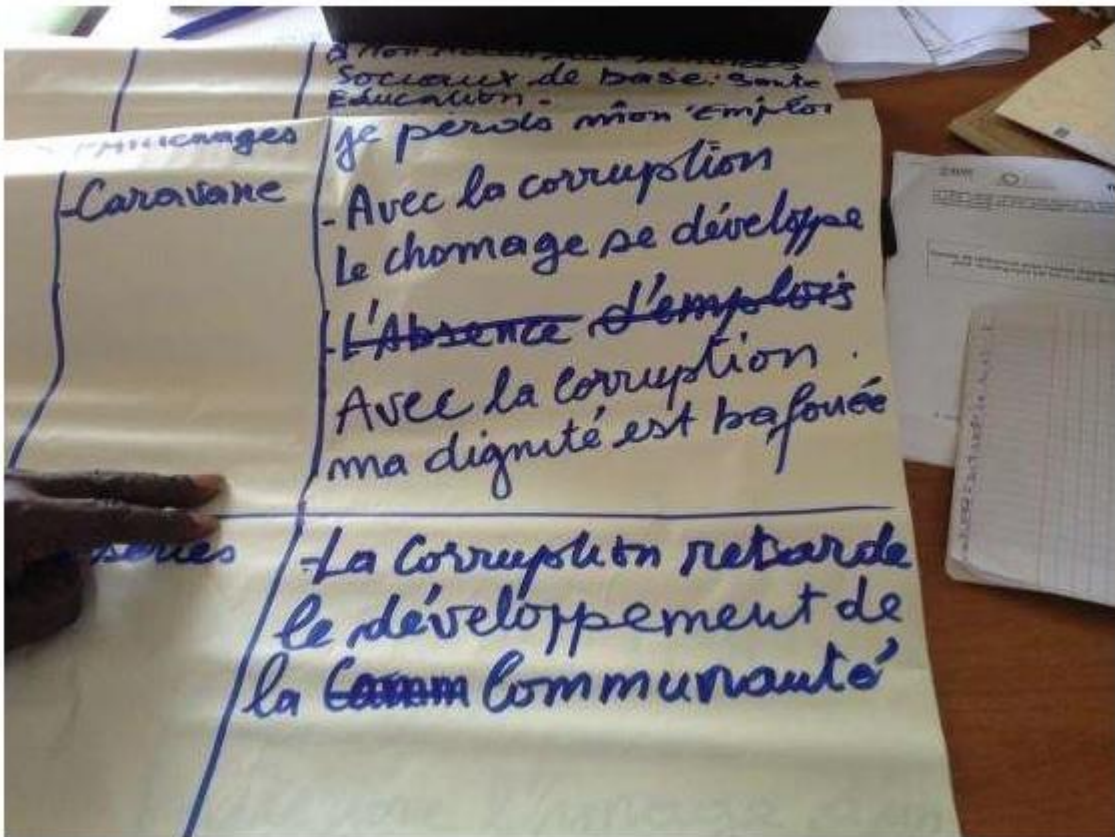 Sociaux de base: Santé
Education.
je perds mon emploi
- Caravane
- Avec la corruption
Le chomage se développe
- L'Absence d'emplois
Avec la corruption.
ma dignité est bafouée
séries
- La Corruption retarde
le développement de
la Comm Communauté